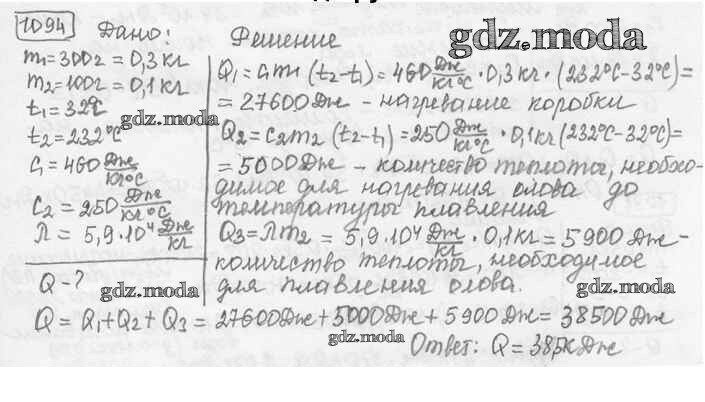 1094 Дано: Решение
gdz.moda
m₁=300г=0,3кг
m₂=100г=0,1кг
t₁=32°C
gdz.moda
t₂=232°C
c₁=460 Дж/кг°C
c₂=250 Дж/кг°C
λ=5,9·10⁴ Дж/кг
Q-?
gdz.moda
Q₁=c₁m₁(t₂-t₁)=460 Дж/кг°C·0,3кг·(232°C-32°C)=
=27600Дж-нагревание коробки
Q₂=c₂m₂(t₂-t₁)=250 Дж/кг°C·0,1кг(232°C-32°C)=
=5000Дж-количество теплоты, необхо-
димое для нагревания олова до
температуры плавления
Q₃=λm₂=5,9·10⁴ Дж/кг·0,1кг=5900Дж-
количество теплоты, необходимое
для плавления олова.
gdz.moda
Q=Q₁+Q₂+Q₃=27600Дж+5000Дж+5900Дж=38500Дж
gdz.moda
Ответ: Q=38,5кДж